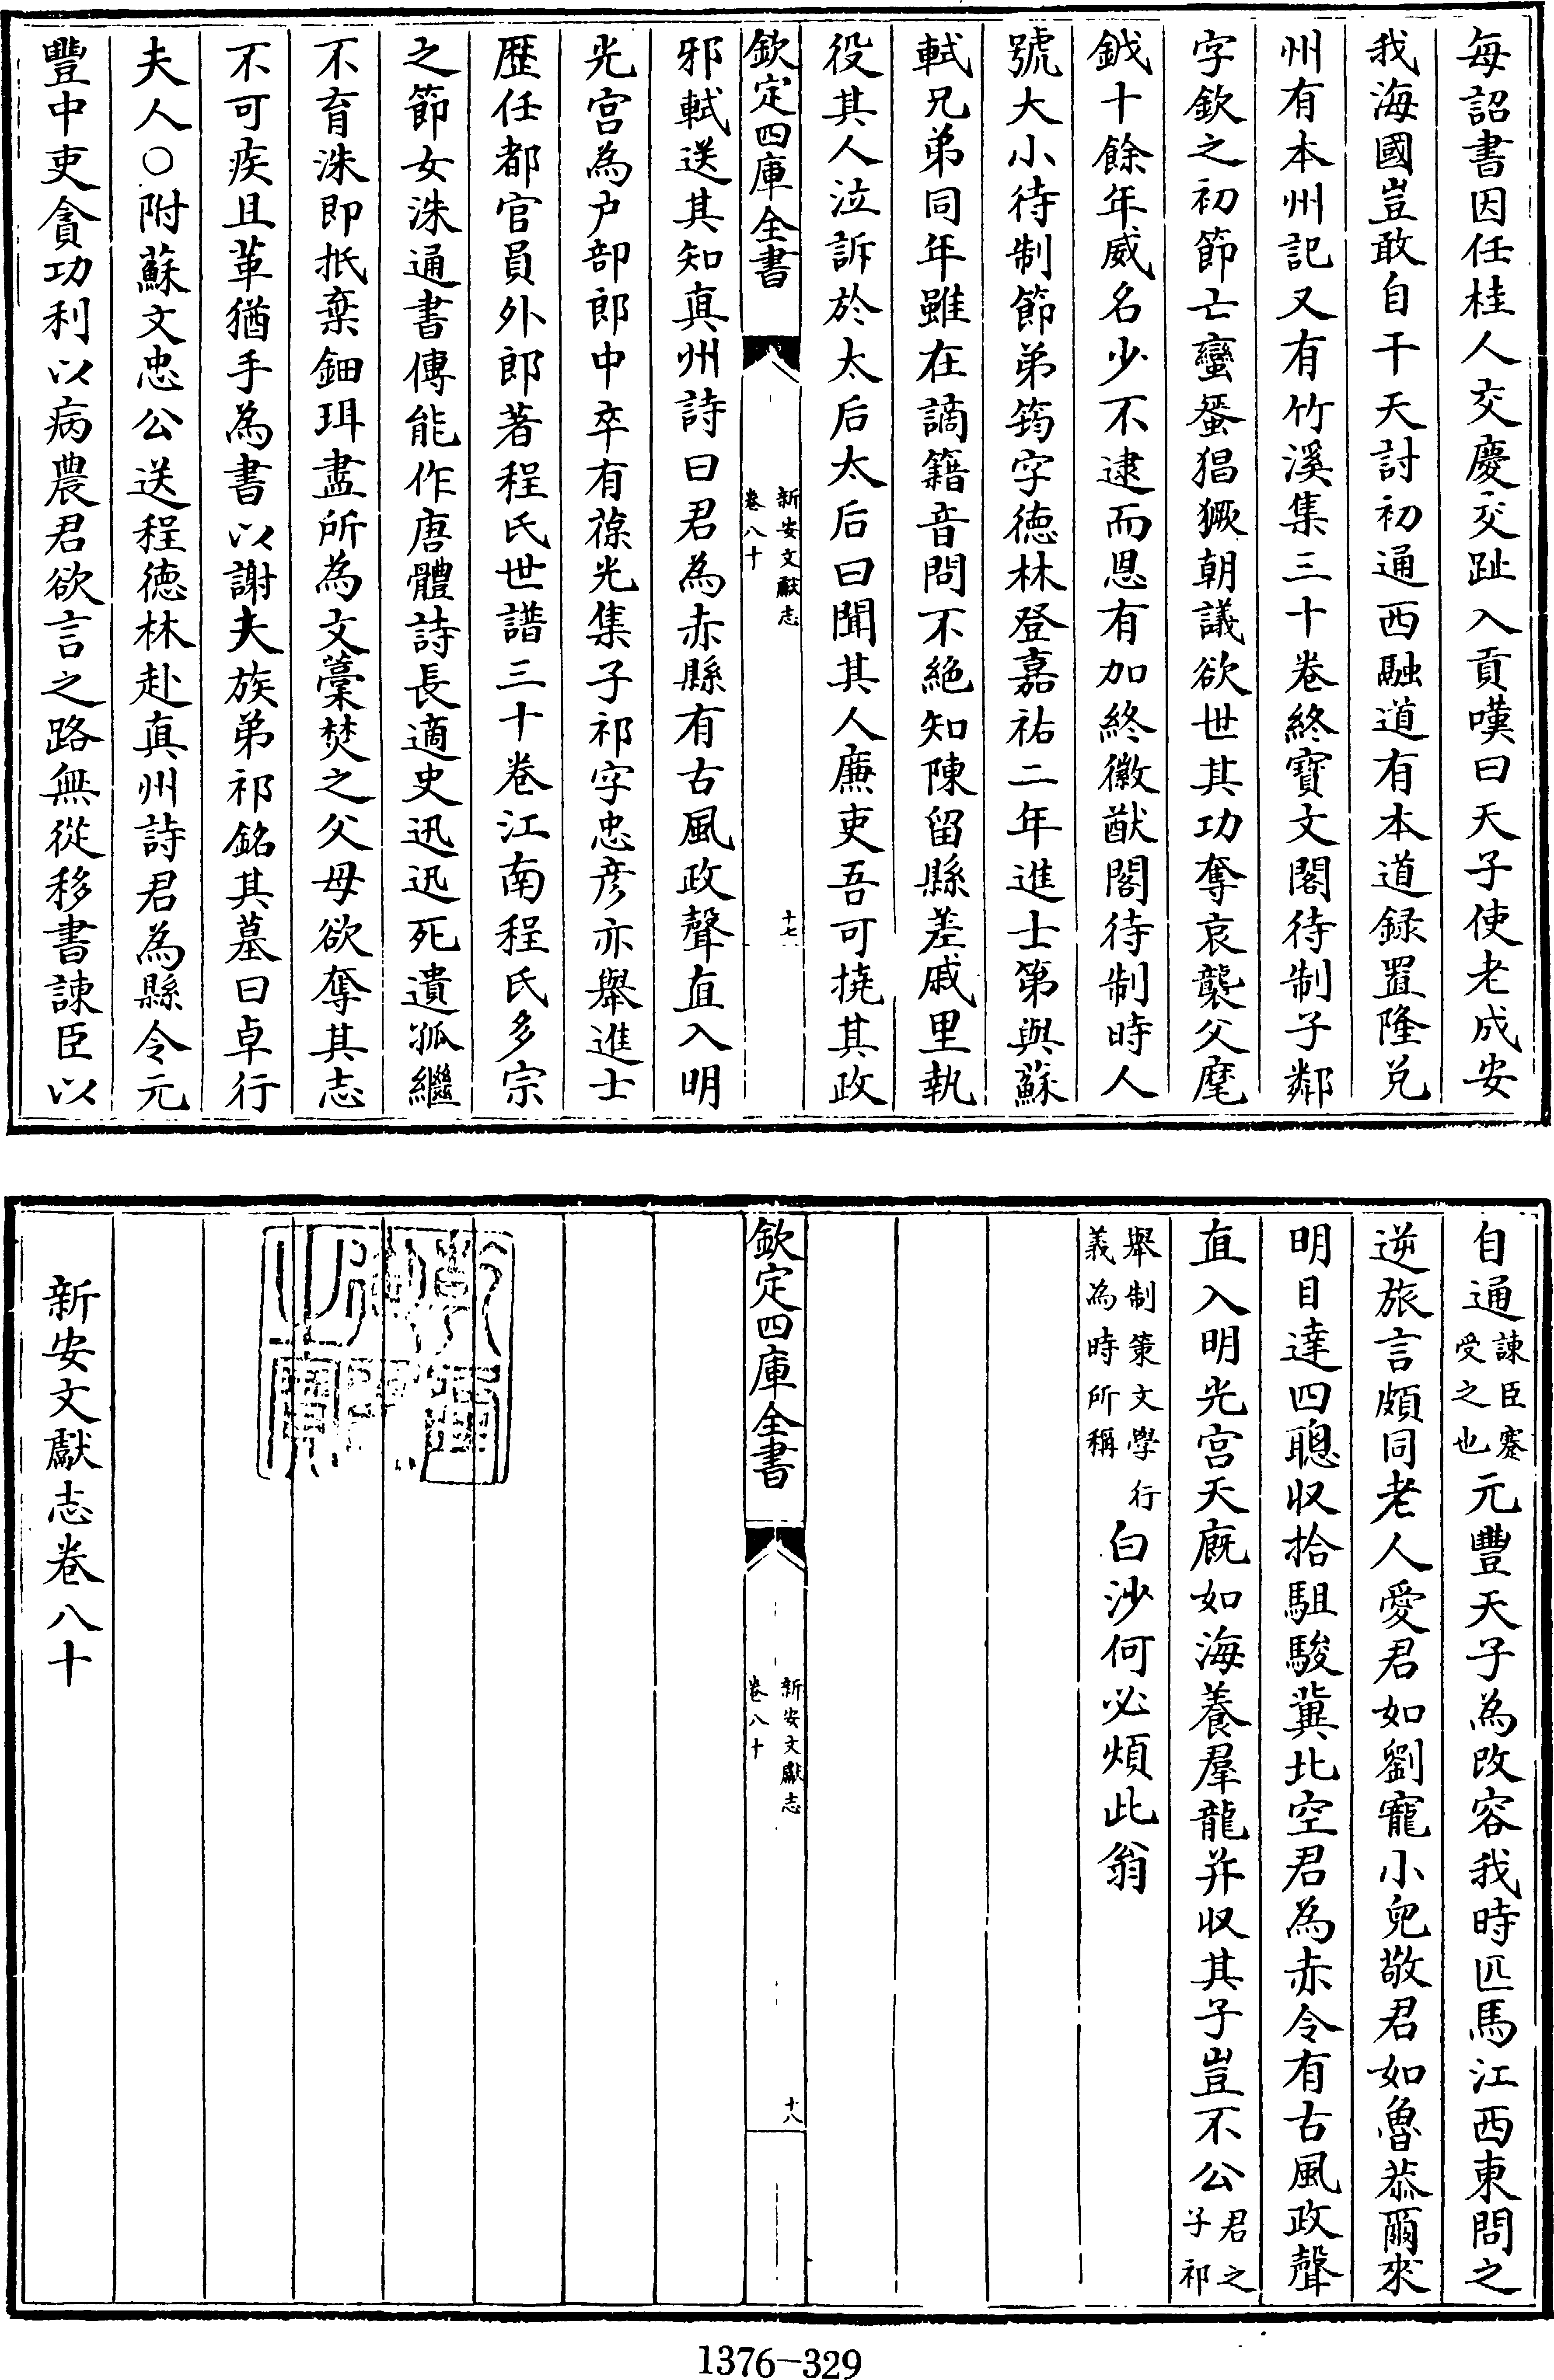 每詔書因任桂人交慶交趾入貢嘆曰天子使老成安
我海國豈敢自干天討初通西融道有本道録置隆兌
州有本州記又有竹溪集三十卷終寶文閣待制子鄰
字欽之初節亡蠻蜑猖獗朝議欲世其功奪哀襲父麾
鉞十餘年威名少不逮而恩有加終徽猷閣待制時人
號大小待制節弟筠字徳林登嘉祐二年進士第與蘇
軾兄弟同年雖在謫籍音問不絶知陳留縣差戚里執
役其人泣訴於太后太后曰聞其人廉吏吾可撓其政
欽定四庫全書
新安文獻志
卷八十
十七
邪軾送其知真州詩曰君為赤縣有古風政聲直入明
光宫為户部郎中卒有葆光集子祁字忠彦亦舉進士
歴任都官員外郎著程氏世譜三十卷江南程氏多宗
之節女洙通書傳能作唐體詩長適史迅迅死遺孤繼
不育洙即抵棄鈿珥盡所為文藁焚之父母欲奪其志
不可疾且革猶手為書以謝夫族弟祁銘其墓曰卓行
夫人○附蘇文忠公送程徳林赴真州詩君為縣令元
豐中吏貪功利以病農君欲言之路無從移書諫臣以
自通諫臣蹇受之也元豐天子為改容我時匹馬江西東問之
逆旅言頗同老人愛君如劉寵小兒敬君如魯恭爾來
明目達四聰収拾駔駿冀北空君為赤令有古風政聲
直入明光宫天廐如海養羣龍并収其子豈不公君之子祁
舉制策文學行義為時所稱白沙何必煩此翁
欽定四庫全書
新安文獻志
卷八十
十八
新安文獻志卷八十
1376-329